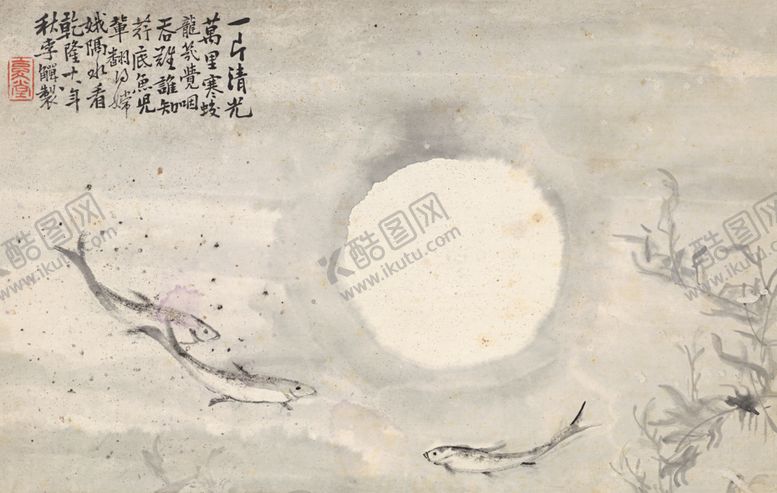 一片清光
萬里寒蛟
龍覺咽
吞難誰知
荇底魚兒
輩翻得嫦
娥隔水看
乾隆十年
秋李鱓製
酷图网
www.ikutu.com
酷图网
www.ikutu.com
酷图网
www.ikutu.com